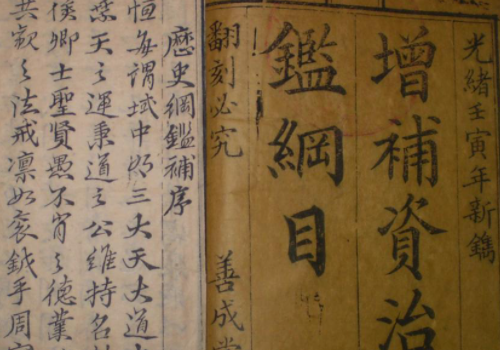 光緒壬寅年新鐫
增補資治
鑑綱目
翻刻必究 善成堂
歷史綱鑑補序
恒每謂域中 三大天大道
天之運秉道之公維持名
侯卿士聖賢愚不肖之德業
共 之法戒凛如袞鉞乎周